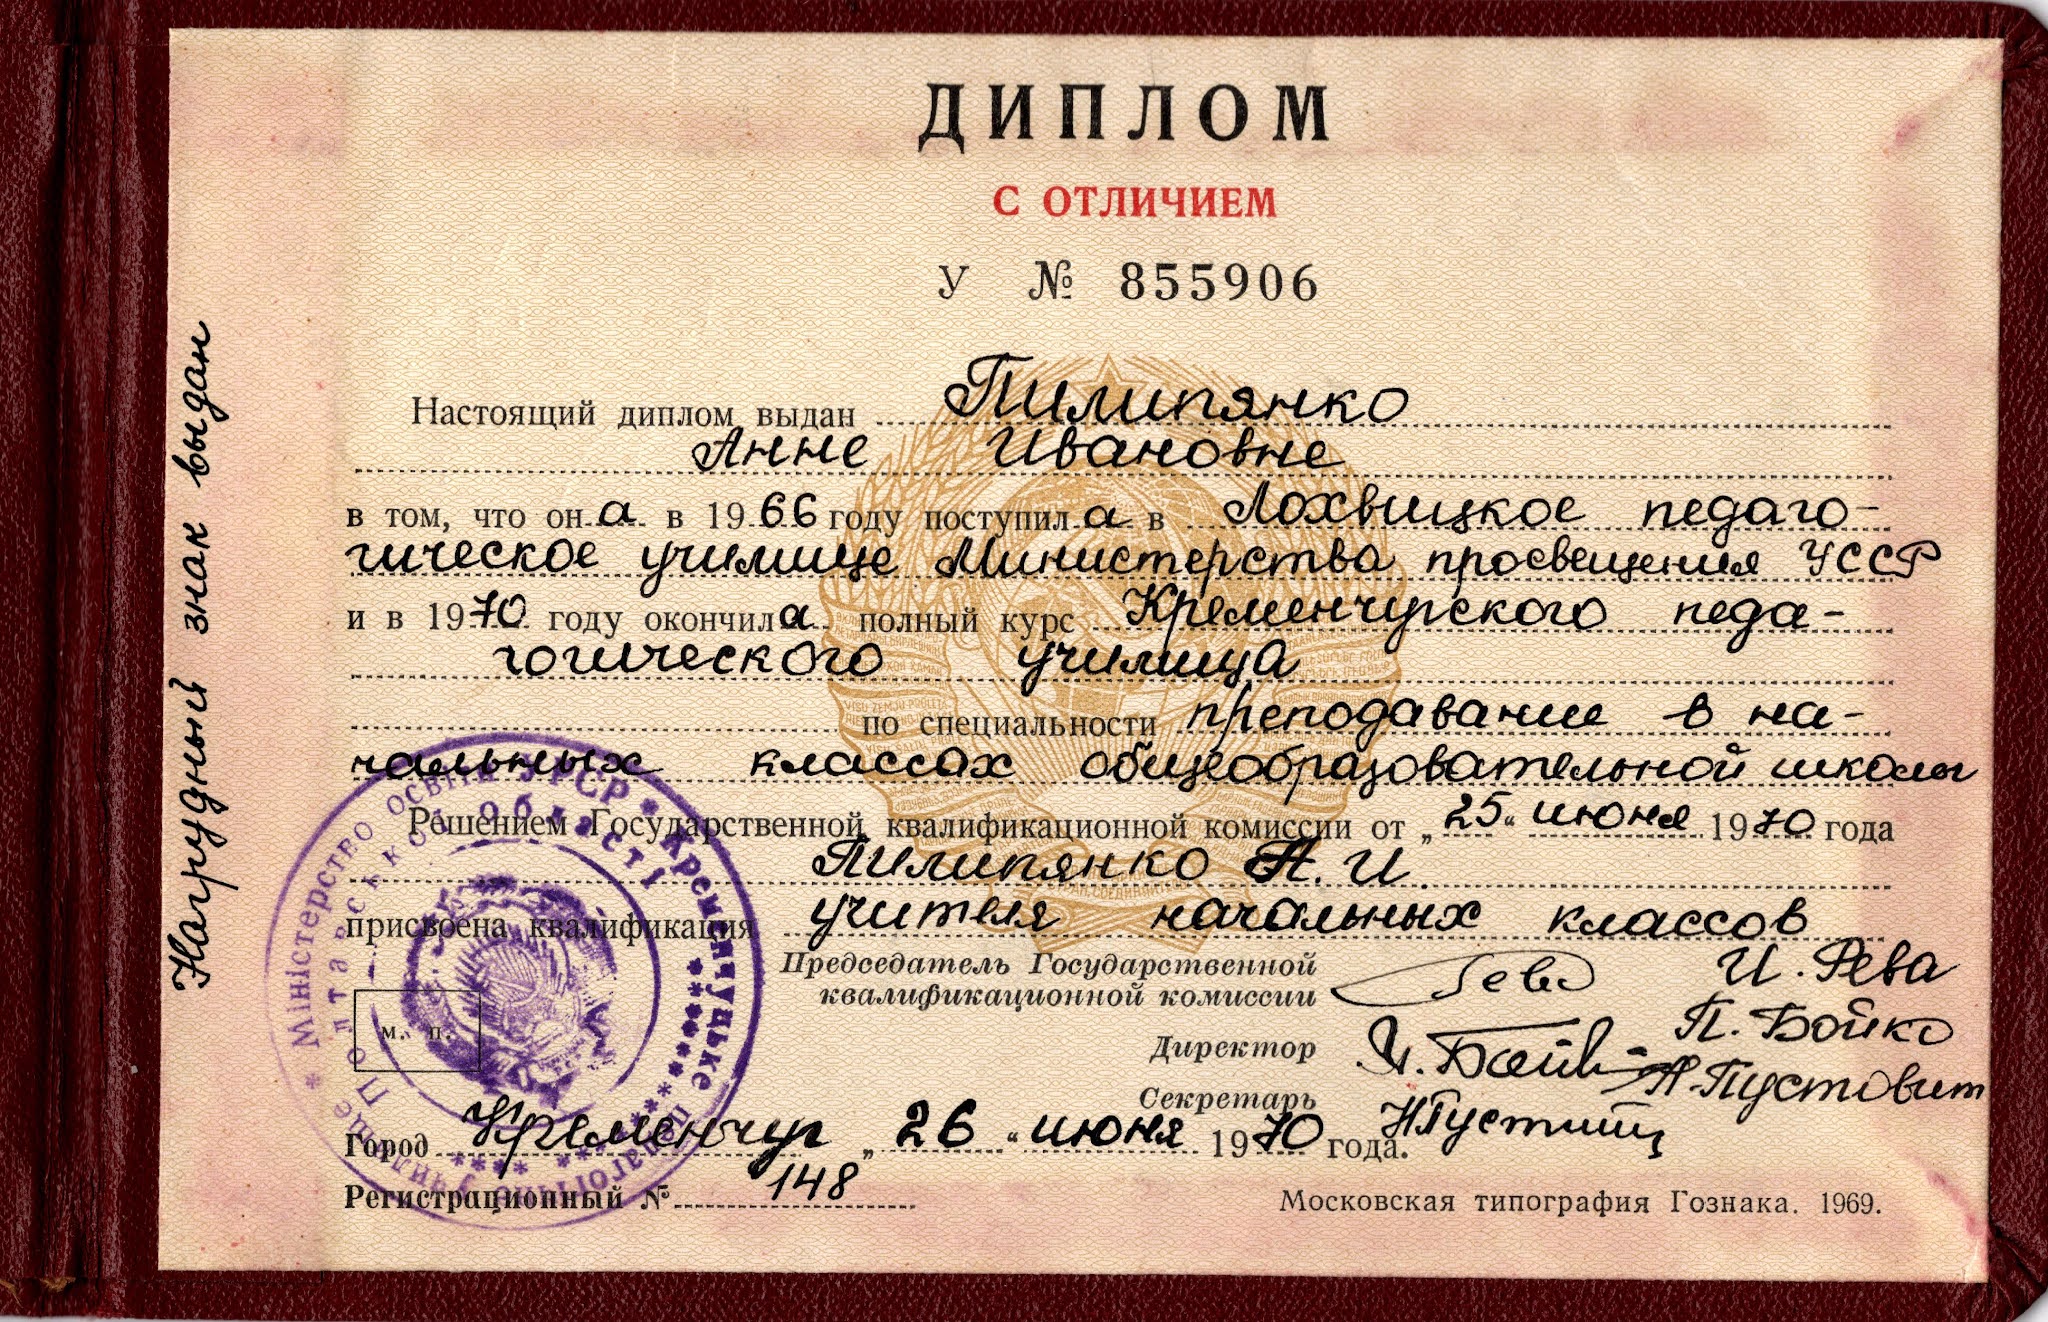 ДИПЛОМ
С ОТЛИЧИЕМ
У № 855906
Настоящий диплом выдан Пилипянко
Анне Ивановне
в том, что она в 1966 году поступила в Лохвицкое педаго-
гическое училище Министерства просвещения УССР
и в 1970 году окончила полный курс Кременчугского педа-
гогического училища
по специальности преподавание в на-
чальных классах общеобразовательной школы
Решением Государственной квалификационной комиссии от „25" июня 1970 года
Пилипянко А. И.
присвоена квалификация учителя начальных классов
Председатель Государственной
квалификационной комиссии И. Рева
Директор П. Бойко
Секретарь Н. Пустовит
м. п.
Город Кременчуг „26" июня 1970 года.
Регистрационный № 148
Московская типография Гознака. 1969.
Нагрудный знак выдан
* Міністерство освіти УРСР * Кременчуцьке педагогічне училище
Полтавської області